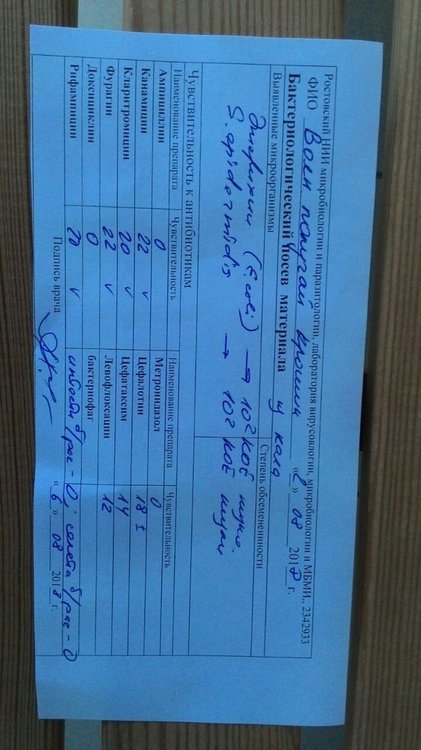 Ростовский НИИ микробиологии и паразитологии, лаборатория вирусологии, микробиологии и МБМИ., 2342933
ФИО Волн попугай Крошка «2» 08 2018 г.
Бактериологический посев материала кала
Выявленные микроорганизмы Степень обсемененности
Эшерихии (E.coli) → 10² КОЕ
S. epidermidis → 10² КОЕ
Чувствительность к антибиотикам
Наименование препарата Чувствительность Наименование препарата Чувствительность
Ампициллин 0 Метронидазол 0
Канамицин 22 v Цефалотин 18 ±
Кларитромицин 20 v Цефатаксим 14
Фурагин 22 v Левофлоксацин 12
Доксициклин 0 бактериофаг
Рифампицин 20 v интести б/фаг - 0; секста б/фаг - 0
Подпись врача «6» 08 2018 г.